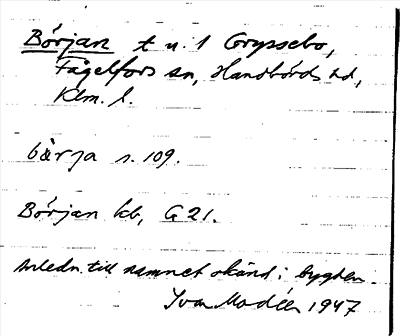 Början t u. 1 Gryssebo,
Fågelfors sn, Handbörds hd,
Klm. l.
börja s. 109.
Början kb, G 21.
Anledn. till namnet okänd i bygden.
Ivar Modéer 1947